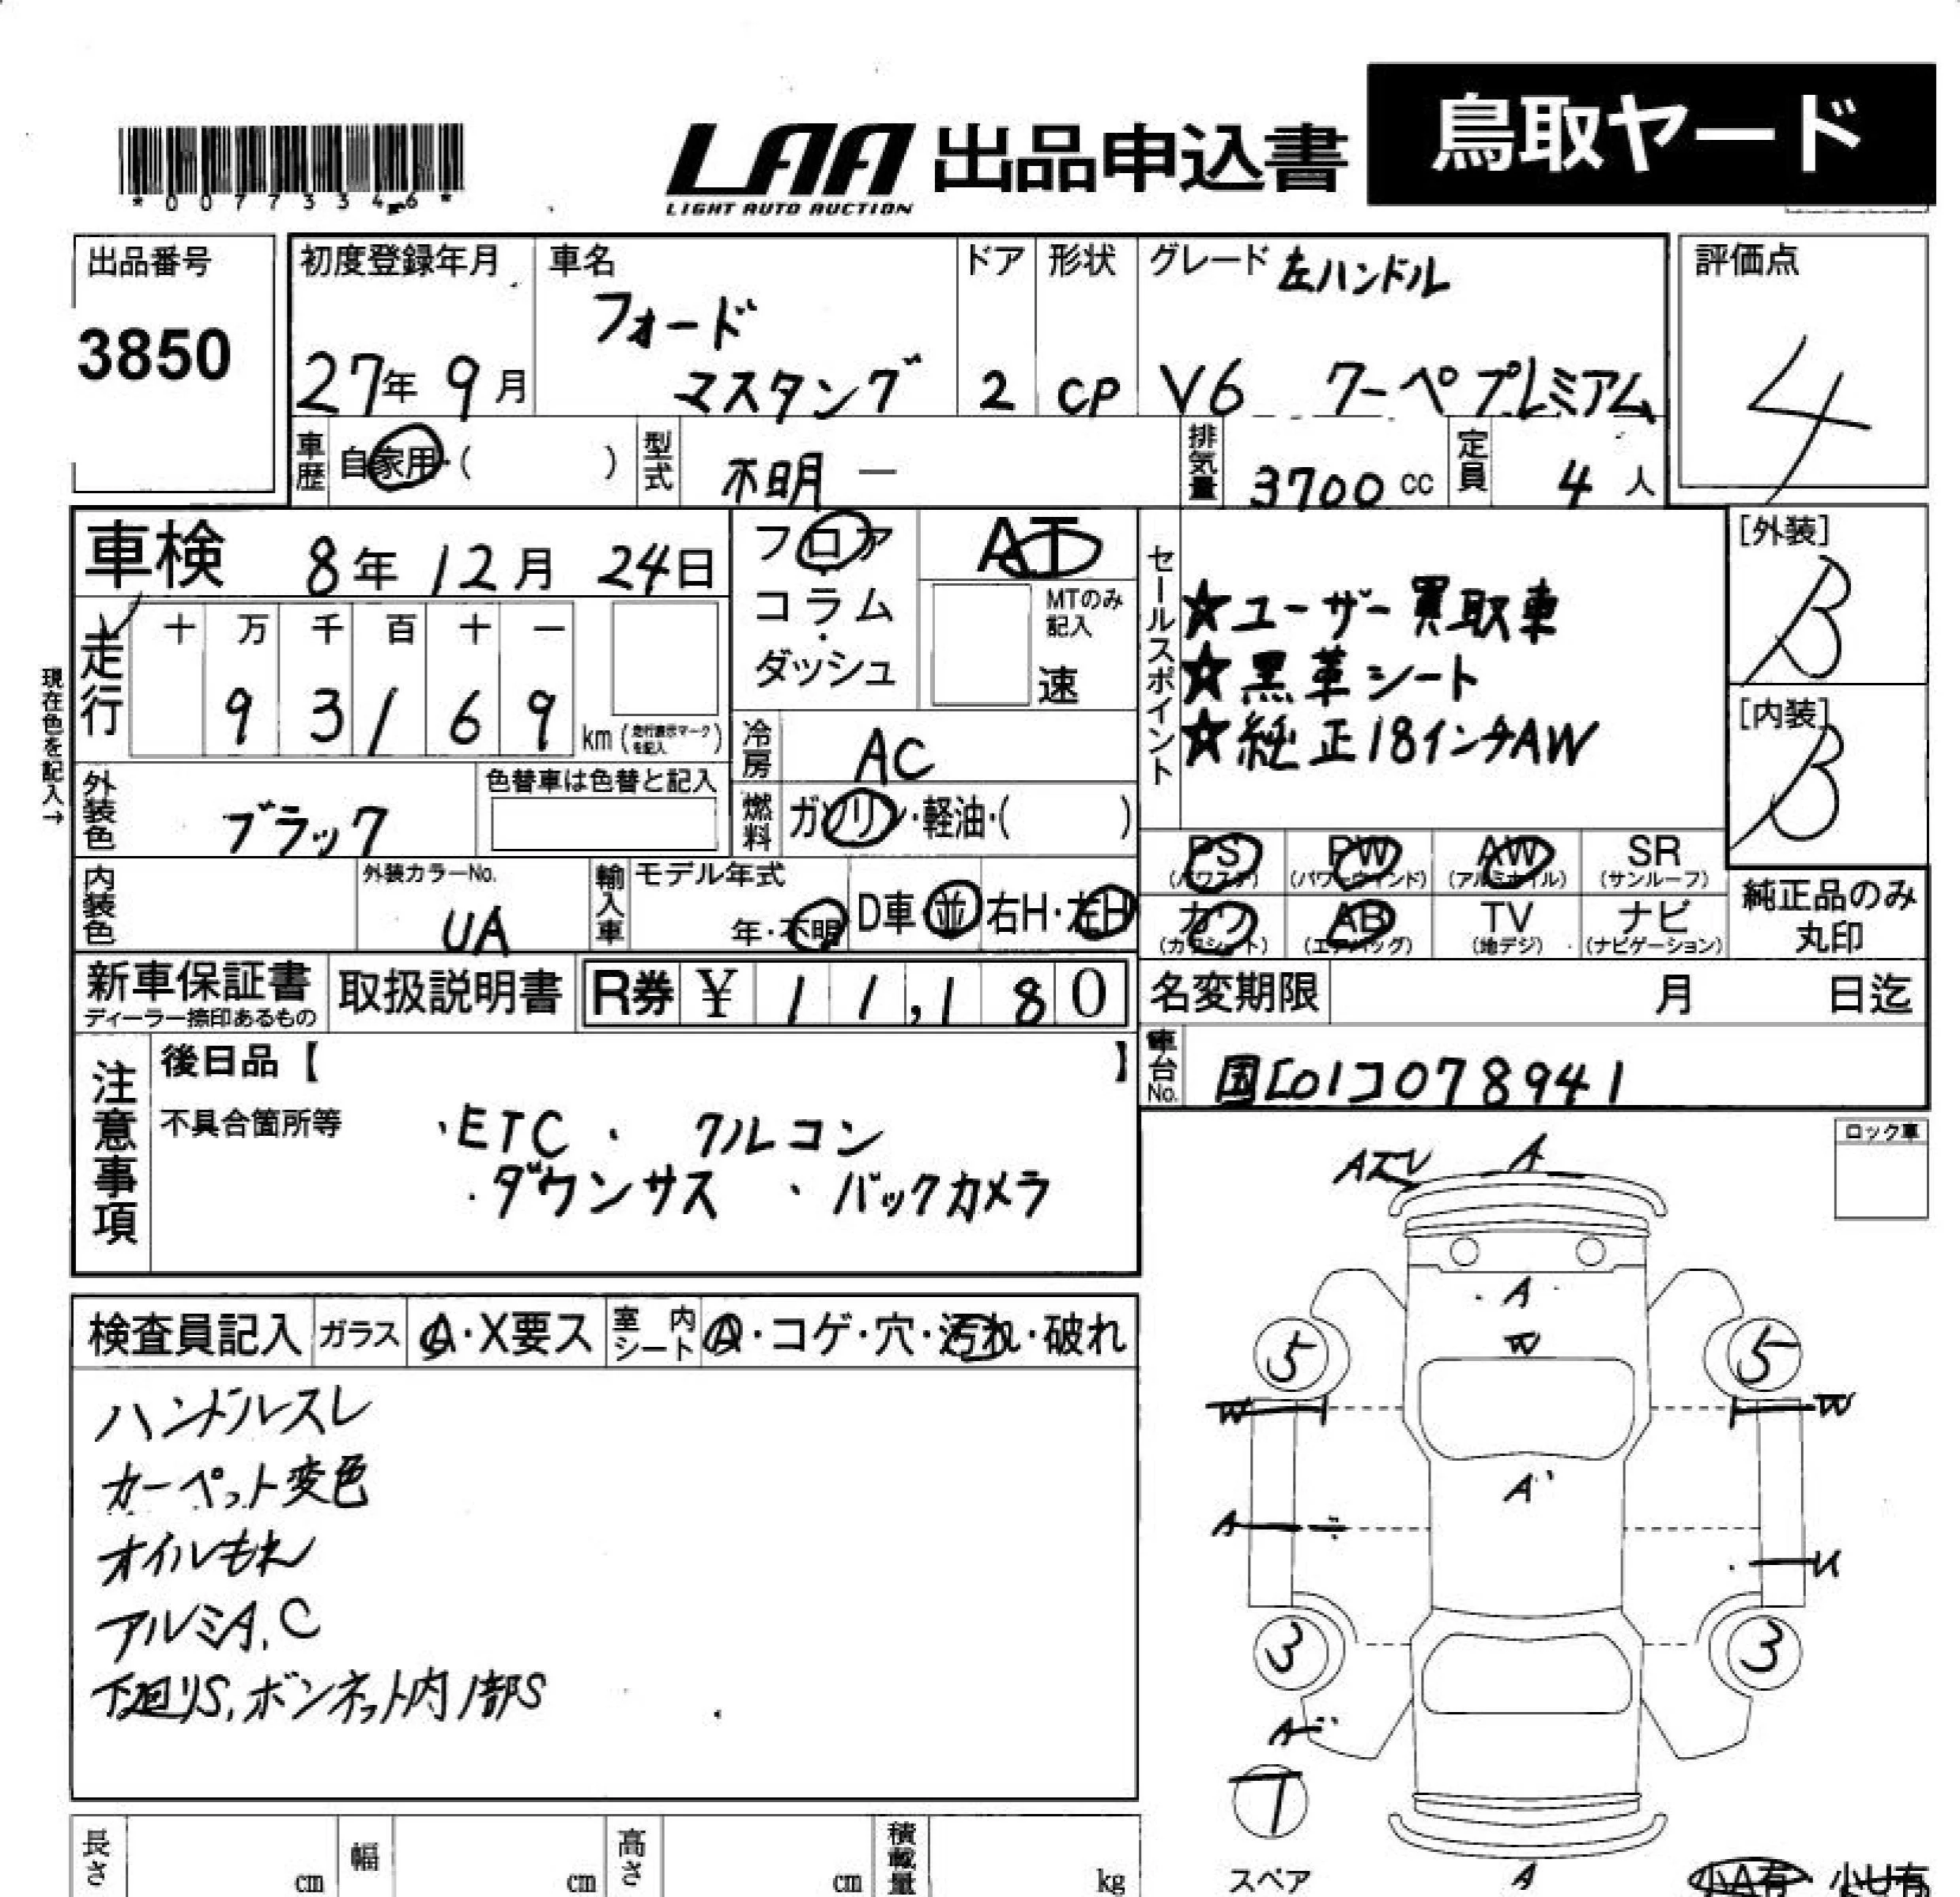 鳥取ヤード
LAA 出品申込書
LIGHT AUTO AUCTION
出品番号
3850
初度登録年月
27年 9月
車名
フォード
マスタング
ドア
2
形状
CP
グレード 左ハンドル
V6 クーペ プレミアム
評価点
4
車歴 自家用・( )
型式 不明 ー
排気量 3700 cc
定員 4 人
車検 8年 12月 24日
フロア・コラム・ダッシュ
AT
MTのみ記入
速
セールスポイント
☆ユーザー買取車
☆黒革シート
☆純正18インチAW
[外装]
B
[内装]
B
現在色を記入→
走行
十 万 千 百 十 一
9 3 1 6 9
km (走行表示マークを記入)
冷房 AC
燃料 ガソリン・軽油・( )
外装色 ブラック
色替車は色替と記入
内装色
外装カラーNo.
UA
輸入車
モデル年式
年・不明
D車・並 右H・左H
PS (パワステ)
PW (パワーウィンド)
AW (アルミホイル)
SR (サンルーフ)
カワ (カワシート)
AB (エアバッグ)
TV (地デジ)
ナビ (ナビゲーション)
純正品のみ丸印
新車保証書
ディーラー捺印あるもの
取扱説明書
R券 ¥ 11,180
名変期限 月 日迄
車台No. 国[01]078941
注意事項
後日品【 】
不具合箇所等
・ETC ・クルコン
・ダウンサス ・バックカメラ
ロック車
検査員記入
ガラス A・X要ス
室内シート A・コゲ・穴・汚れ・破れ
ハンドルスレ
カーペット変色
オイルもれ
アルミA,C
下廻りS,ボンネット内部S
A
A
W
5
5
W
W
A'
A
3
3
スペア
A
小A有・小U有
長さ cm
幅 cm
高さ cm
積載量 kg